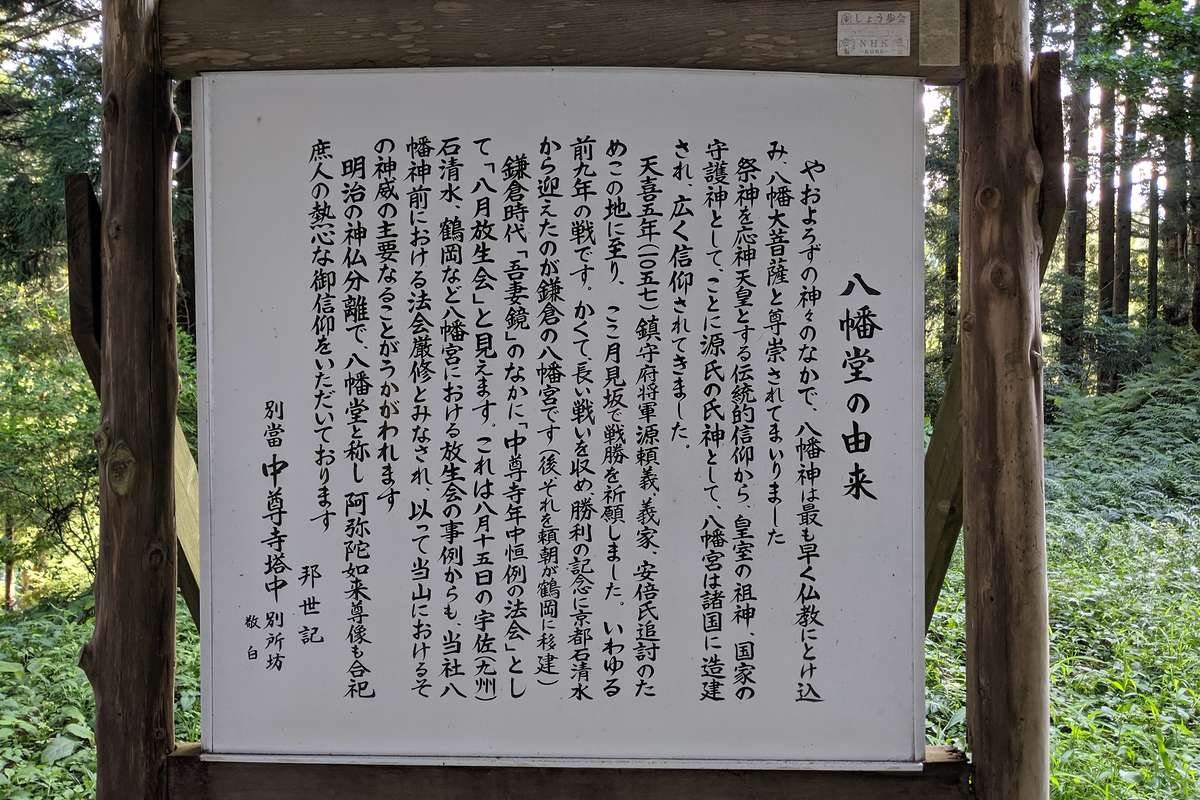 八幡堂の由来
やおよろずの神々のなかで、八幡神は最も早く仏教にとけ込
み、八幡大菩薩と尊崇されてまいりました
祭神を応神天皇とする伝統的信仰から、皇室の祖神、国家の
守護神として、ことに源氏の氏神として、八幡宮は諸国に造建
され、広く信仰されてきました。
天喜五年(一〇五七)鎮守府将軍源頼義、義家、安倍氏追討のた
めこの地に至り、ここ月見坂で戦勝を祈願しました。いわゆる
前九年の戦です。かくて長い戦いを収め、勝利の記念に京都石清水
から迎えたのが鎌倉の八幡宮です(後、それを頼朝が鶴岡に移建)
鎌倉時代「吾妻鏡」のなかに「中尊寺年中恒例の法会」とし
て「八月放生会」と見えます。これは八月十五日の宇佐(九州)
石清水、鶴岡など八幡宮における放生会の事例からも、当社八
幡神前における法会厳修とみなされ、以って当山におけるそ
の神威の主要なることがうかがわれます
明治の神仏分離で、八幡堂と称し阿弥陀如来尊像も合祀
庶人の熱心な御信仰をいただいております
邦世記
別當中尊寺塔中別所坊
敬白
しょう歩会
NHK